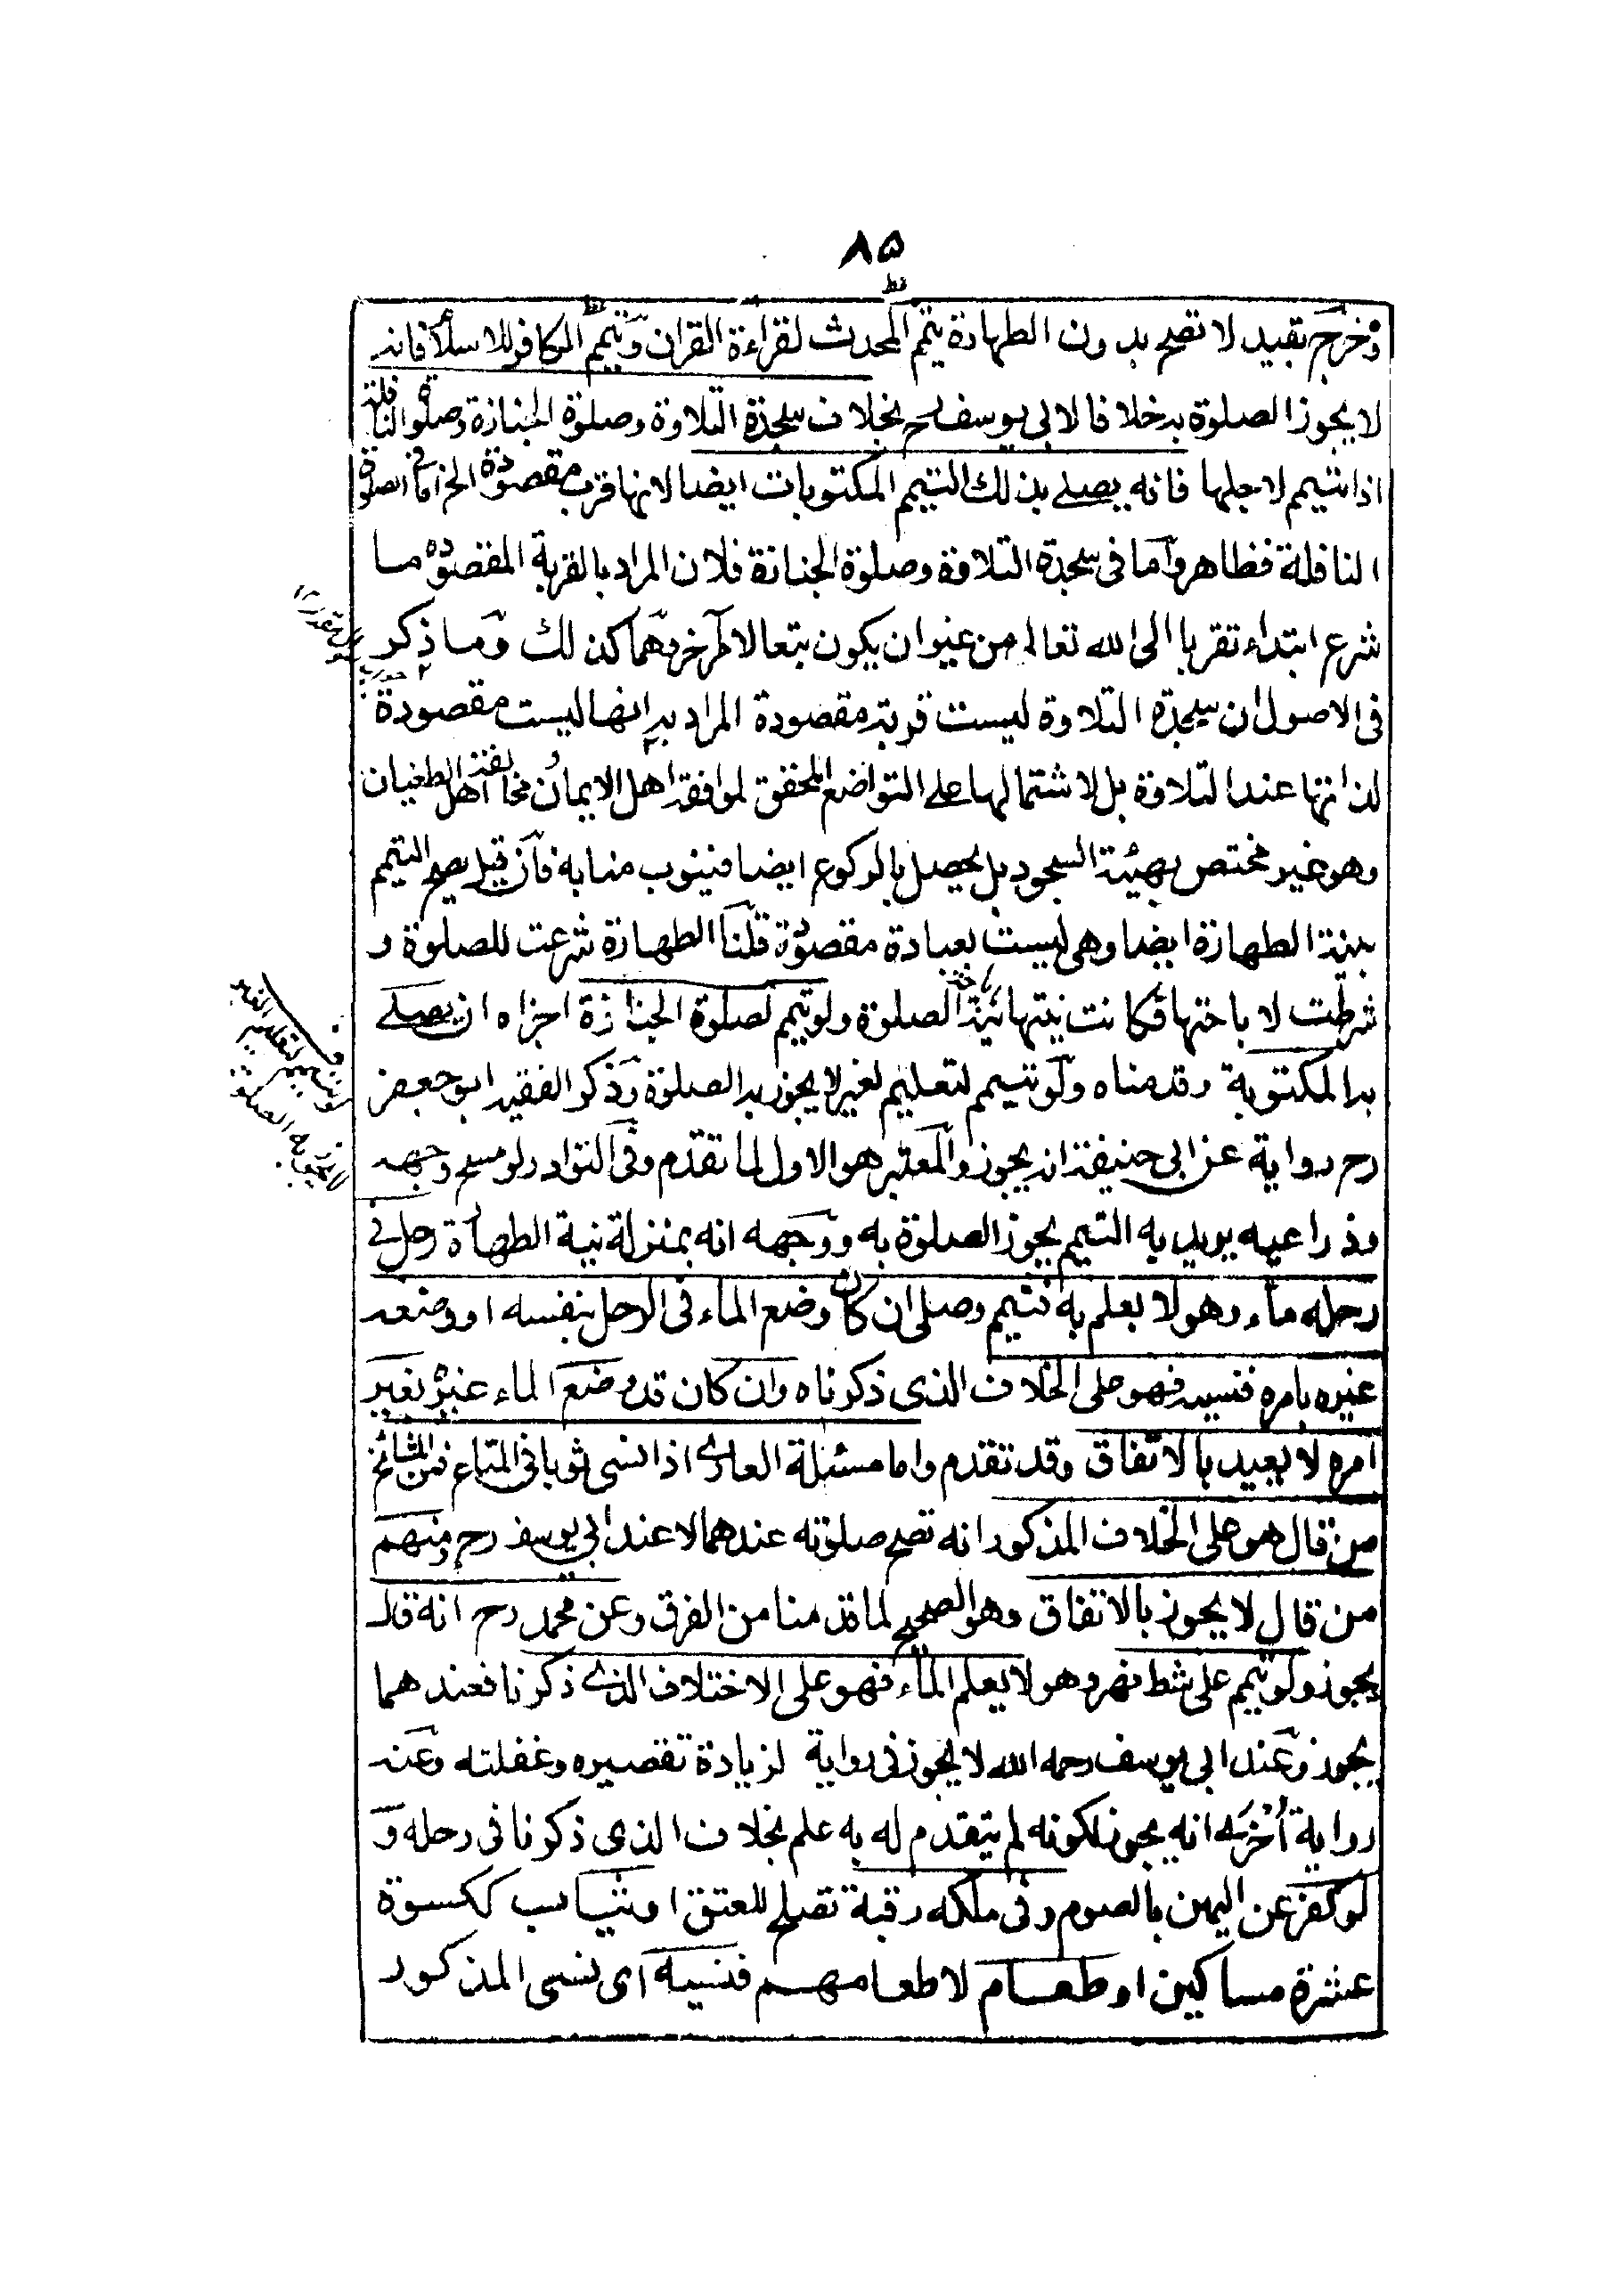 ٨٥
وخرج بقيد لا تصح بدون الطهارة تيمم المحدث لقراءة القران وتيمم الكافر للاسلام فانه
لا يجوز الصلوة به خلافا لابى يوسف رح بخلاف سجدة التلاوة وصلوة الجنازة وصلوة النافلة
اذا تيمم لاجلها فانه يصلى بذلك التيمم المكتوبات ايضا لانها قرب مقصودة الخ اما فى الصلوة
النافلة فظاهر واما فى سجدة التلاوة وصلوة الجنازة فلان المراد بالقربة المقصودة ما
شرع ابتداء تقربا الى الله تعالى من غير ان يكون تبعا لامر اخر وهما كذلك وما ذكر
فى الاصول ان سجدة التلاوة ليست قربة مقصودة المراد به انها ليست مقصودة
لذاتها عند التلاوة بل لاشتمالها على التواضع المحقق لموافقة اهل الايمان ومخالفة اهل الطغيان
وهو غير مختص بهيئة السجود بل يحصل بالركوع ايضا فينوب منابه فان قيل يصح التيمم
بنية الطهارة ايضا وهى ليست بعبادة مقصودة قلنا الطهارة شرعت للصلوة و
شرطت لاباحتها فكانت نيتها نية الصلوة ولو تيمم لصلوة الجنازة اجزاه ان يصلى
به المكتوبة وقدمناه ولو تيمم لتعليم لغير لا يجوز به الصلوة وذكر الفقيه ابو جعفر
رح رواية عن ابى حنيفة انه يجوز والمعتبر هو الاول لما تقدم وفى النوادر لو مسح وجهه
وذراعيه يريد به التيمم يجوز الصلوة به ووجهه انه بمنزلة نية الطهارة رجل فى
رحله ماء وهو لا يعلم به فتيمم وصلى ان كان وضع الماء فى الرحل بنفسه او وضعه
غيره بامره فنسيه فهو على الخلاف الذى ذكرناه وان كان قد وضع الماء غيره بغير
امره لا يعيد بالاتفاق وقد تقدم واما مسئلة العارى اذا نسى ثوبا فى المتاع فمن المشائخ
من قال هو على الخلاف المذكور انه تصح صلوته عندهما لا عند ابى يوسف رح ومنهم
من قال لا يجوز بالاتفاق وهو الصحيح لما قدمنا من الفرق وعن محمد رح انه قال
يجوز ولو تيمم على شط نهر وهو لا يعلم الماء فهو على الاختلاف الذى ذكرنا فعندهما
يجوز وعند ابى يوسف رحمه الله لا يجوز فى رواية لزيادة تقصيره وغفلته وعنه
رواية اخرى انه يجوز لكونه لم يتقدم له به علم بخلاف الذى ذكرنا فى رحله و
لو كفر عن اليمين بالصوم وفى ملكه رقبة تصلح للعتق او ثياب ككسوة
عشرة مساكين او طعام لاطعامهم فنسيه اى نسى المذكور